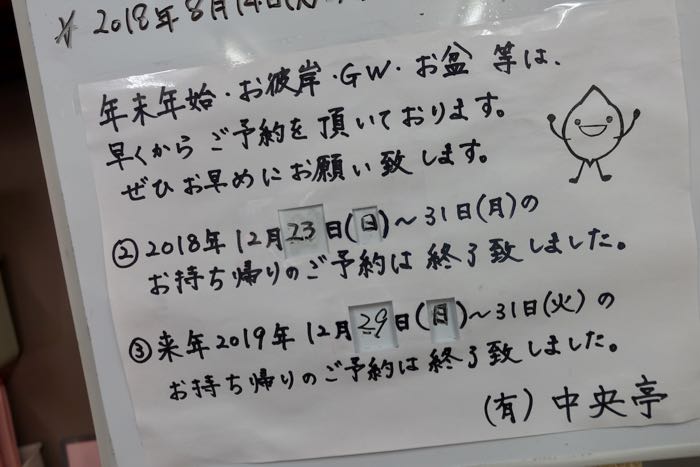 2018年8月14日(火)
年末年始・お彼岸・GW・お盆 等は、
早くから ご予約を頂いております。
ぜひお早めにお願い致します。
② 2018年12月23日(日)～31日(月)の
お持ち帰りのご予約は 終了致しました。
③ 来年2019年12月29日(日)～31日(火)の
お持ち帰りのご予約は終了致しました。
(有) 中央亭